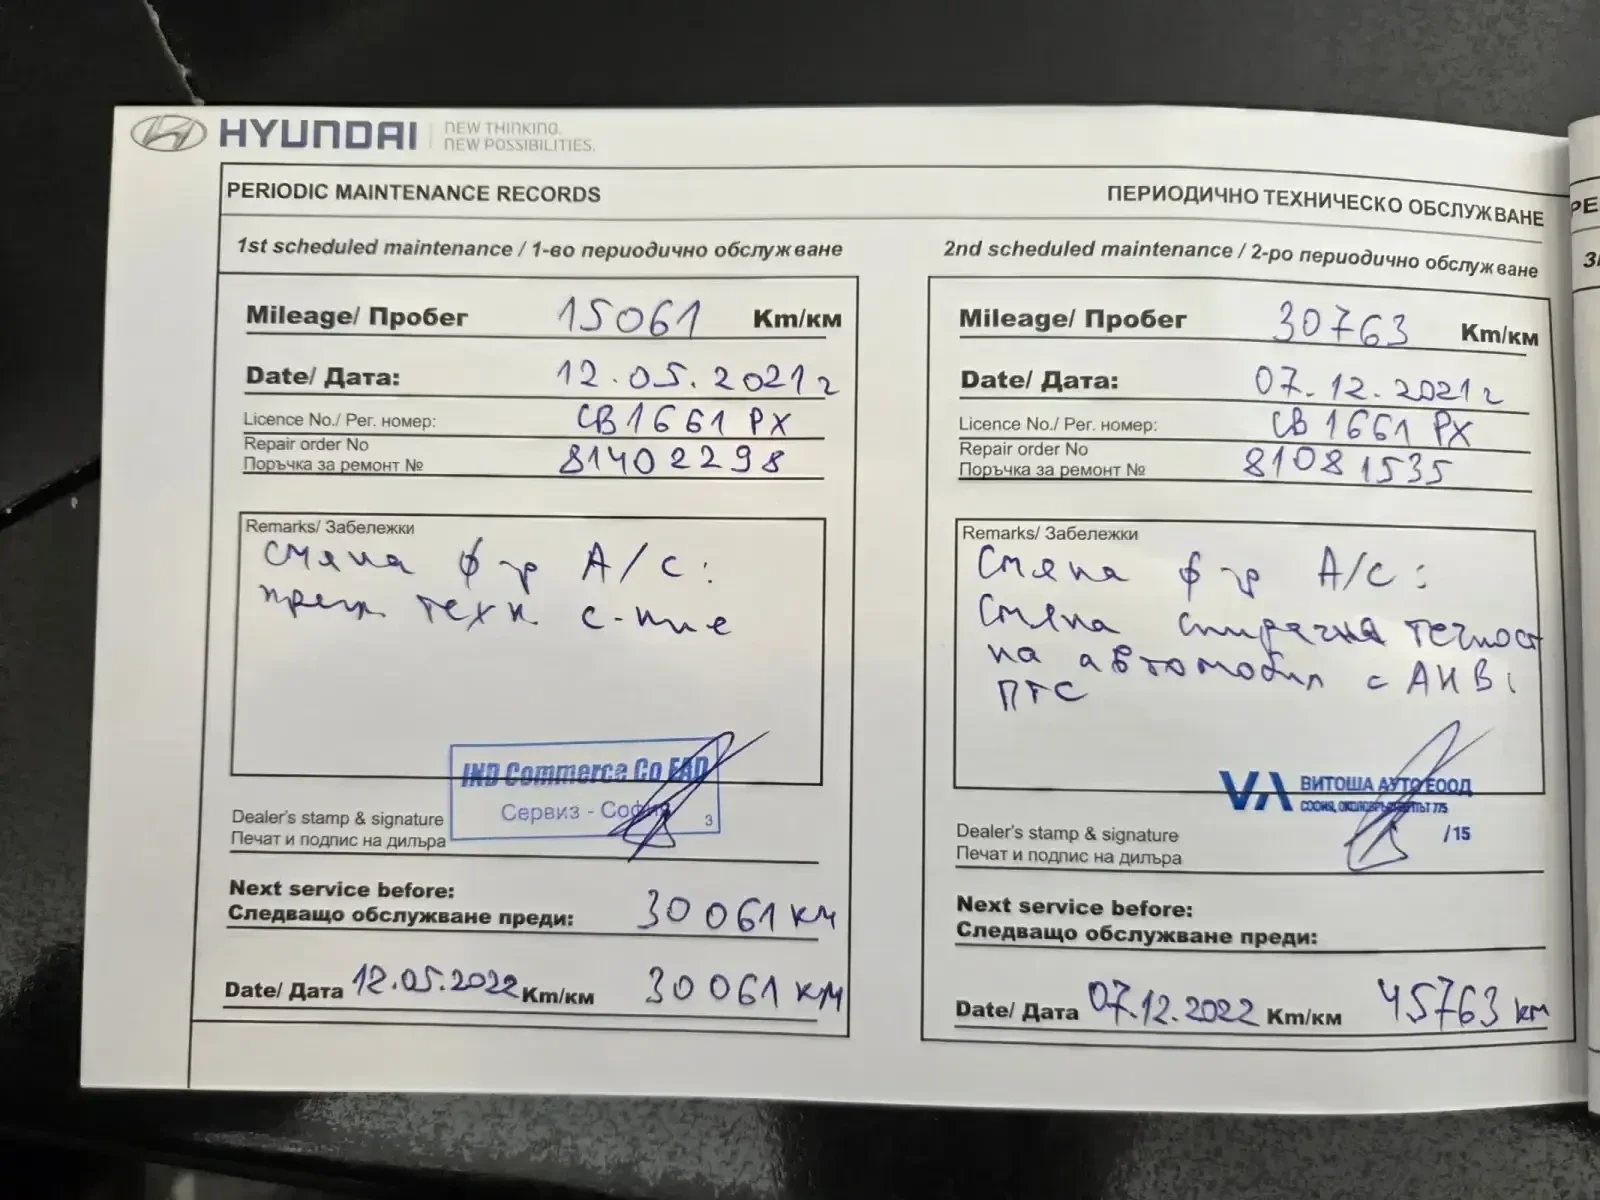 HYUNDAI NEW THINKING.
NEW POSSIBILITIES.
PERIODIC MAINTENANCE RECORDS
ПЕРИОДИЧНО ТЕХНИЧЕСКО ОБСЛУЖВАНЕ
1st scheduled maintenance / 1-во периодично обслужване
Mileage/ Пробег 15061 Km/км
Date/ Дата: 12.05.2021 г
Licence No./ Рег. номер: СВ1661 РХ
Repair order No
Поръчка за ремонт № 81402298
Remarks/ Забележки
Смяна ф-р А/С:
техн с-ние
IND Commerce Co EAD
Сервиз - София
3
Dealer's stamp & signature
Печат и подпис на дилъра
Next service before:
Следващо обслужване преди: 30 061 км
Date/ Дата 12.05.2022 Km/км 30 061 км
2nd scheduled maintenance / 2-ро периодично обслужване
Mileage/ Пробег 30763 Km/км
Date/ Дата: 07.12.2021 г
Licence No./ Рег. номер: СВ 1661 РХ
Repair order No
Поръчка за ремонт № 81081535
Remarks/ Забележки
Смяна ф-р А/С:
Смяна спирачна течност
на автомобил с
ПТС
VA ВИТОША АУТО ЕООД
СОФИЯ, ОКОЛОВРЪСТЕН ПЪТ 775
/15
Dealer's stamp & signature
Печат и подпис на дилъра
Next service before:
Следващо обслужване преди:
Date/ Дата 07.12.2022 Km/км 45763 км